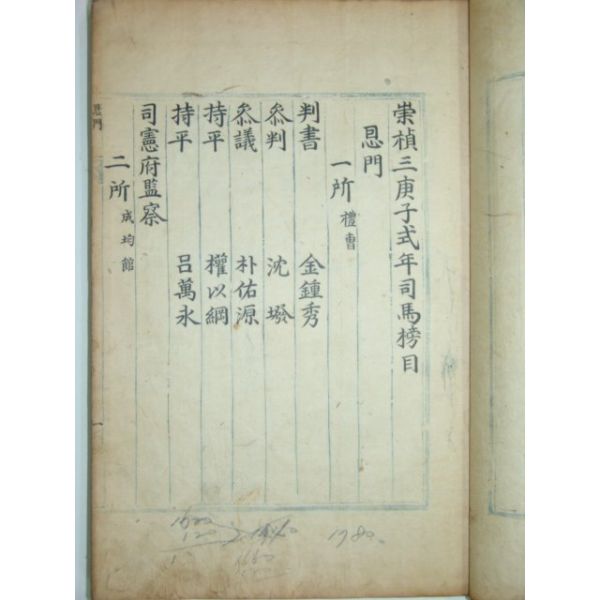 崇禎三庚子式年司馬榜目
恩門
一所 禮曹
判書 金鍾秀
叅判 沈墢
叅議 朴佑源
持平 權以綱
持平 呂萬永
司憲府監察
二所 成均館
恩門
一
1780